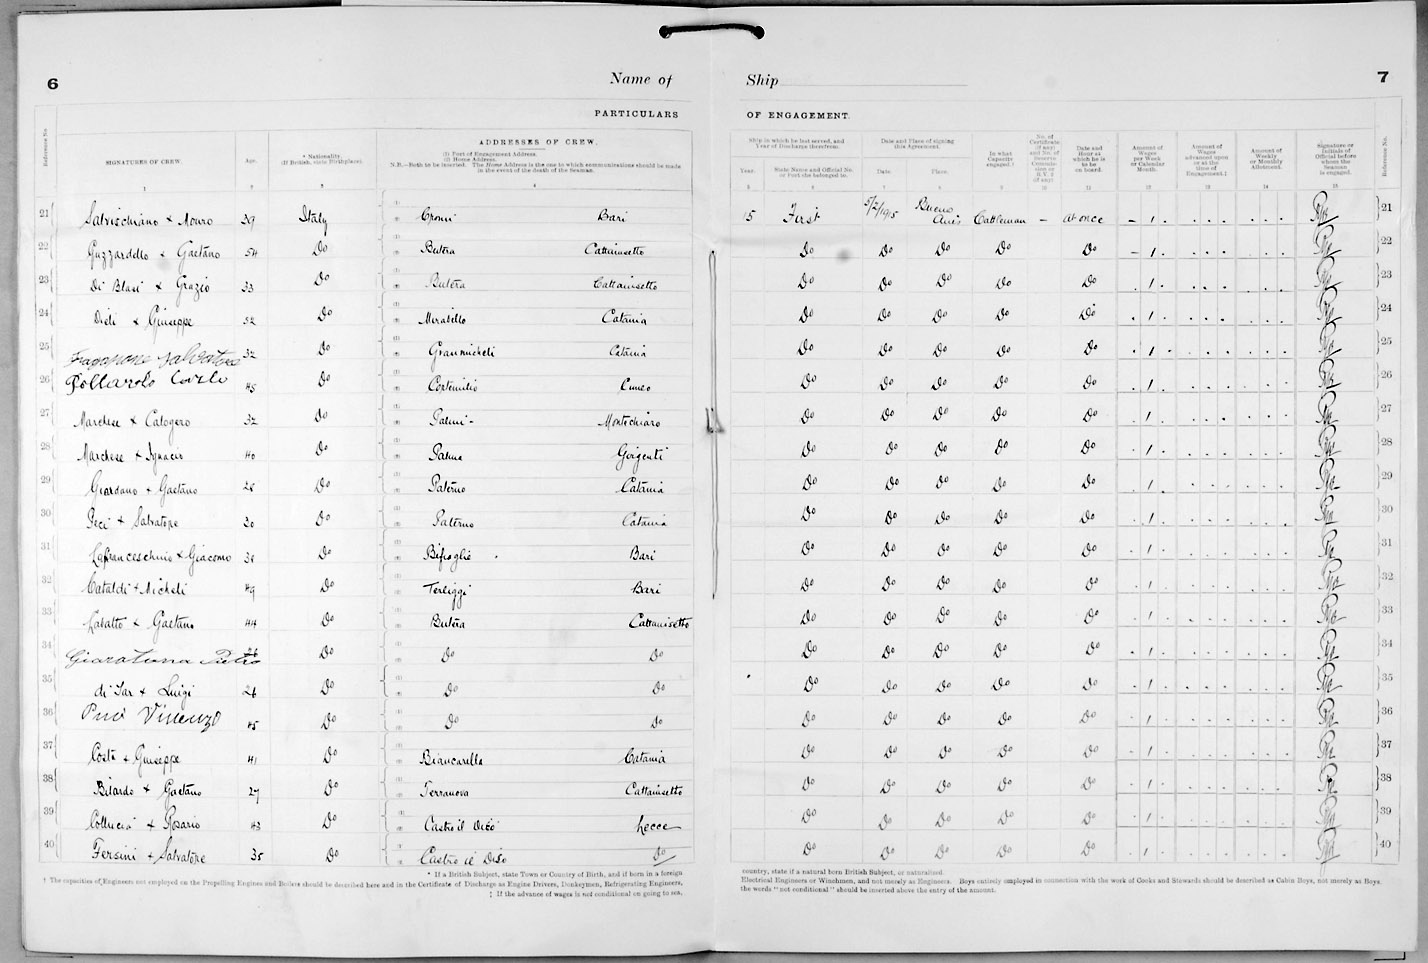 6
Name of
PARTICULARS
Reference No.
SIGNATURES OF CREW.
Age.
* Nationality.
(If British, state Birthplace).
ADDRESSES OF CREW.
(1) Port of Engagement Address.
(2) Home Address.
N.B.—Both to be inserted. The Home Address is the one to which communications should be made
in the event of the death of the Seaman.
1 2 3 4
21 Salvischiano x Mauro 39 Italy Bari
22 Guzzardello x Gaetano 54 Do Butera Caltanisetto
23 Di Blasi x Grazio 33 Do Butera Caltanisetto
24 Dieli x Giuseppe 52 Do Mirabello Catania
25 Fragapane Salvatore 32 Do Granmicheli Catania
26 Pollarolo Carlo 45 Do Cortemilio Cuneo
27 Marchese x Calogero 32 Do Palmi - Montechiaro
28 Marchese x Ignacio 40 Do Palma Girgenti
29 Giordano x Gaetano 28 Do Paterno Catania
30 Peci x Salvatore 30 Do Paterno Catania
31 Lafranceschino x Giacomo 38 Do Bisceglie Bari
32 Cataldi x Micheli 49 Do Terlizzi Bari
33 Labatto x Gaetano 44 Do Butera Caltanisetto
34 Giaratana Pietro 26 Do Do Do
35 di Jar x Luigi 26 Do Do Do
36 Puci Vincenzo 45 Do Do Do
37 Costa x Giuseppe 41 Do Biancarilla Catania
38 Bilardo x Gaetano 27 Do Terranova Caltanisetto
39 Colluccia x Rosario 43 Do Castro il Diso Lecce
40 Fersini x Salvatore 35 Do Castro il Diso Do
* If a British Subject, state Town or Country of Birth, and if born in a foreign
† The capacities of Engineers not employed on the Propelling Engines and Boilers should be described here and in the Certificate of Discharge as Engine Drivers, Donkeymen, Refrigerating Engineers,
‡ If the advance of wages is not conditional on going to sea,
Ship
7
OF ENGAGEMENT.
Ship in which he last served, and
Year of Discharge therefrom.
Date and Place of signing
this Agreement.
Year.
State Name and Official No.
or Port she belonged to.
Date.
Place.
In what
Capacity
engaged.†
No. of
Certificate
(if any)
and No. of
Reserve
Commission
or
R.V. 2
(if any).
Date and
Hour at
which he is
to be
on board.
Amount of
Wages
per Week
or Calendar
Month.
Amount of
Wages
advanced upon
or at the
time of
Engagement.‡
Amount of
Weekly
or Monthly
Allotment.
Signature or
Initials of
Official before
whom the
Seaman
is engaged.
Reference No.
5 6 7 8 9 10 11 12 13 14 15
15 First 5/2/1915 Buenos Aires Cattleman — at once - 1 . 21
Do Do Do Do Do - 1 . 22
Do Do Do Do Do . 1 . 23
Do Do Do Do Do . 1 . 24
Do Do Do Do Do . 1 . 25
Do Do Do Do Do . 1 . 26
Do Do Do Do Do . 1 . 27
Do Do Do Do Do . 1 . 28
Do Do Do Do Do . 1 . 29
Do Do Do Do Do . 1 . 30
Do Do Do Do Do . 1 . 31
Do Do Do Do Do . 1 . 32
Do Do Do Do Do . 1 . 33
Do Do Do Do Do . 1 . 34
Do Do Do Do Do . 1 . 35
Do Do Do Do Do . 1 . 36
Do Do Do Do Do . 1 . 37
Do Do Do Do Do . 1 . 38
Do Do Do Do Do . 1 . 39
Do Do Do Do Do . 1 . 40
country, state if a natural born British Subject, or naturalized.
Electrical Engineers or Winchmen, and not merely as Engineers. Boys entirely employed in connection with the work of Cooks and Stewards should be described as Cabin Boys, not merely as Boys.
the words "not conditional" should be inserted above the entry of the amount.